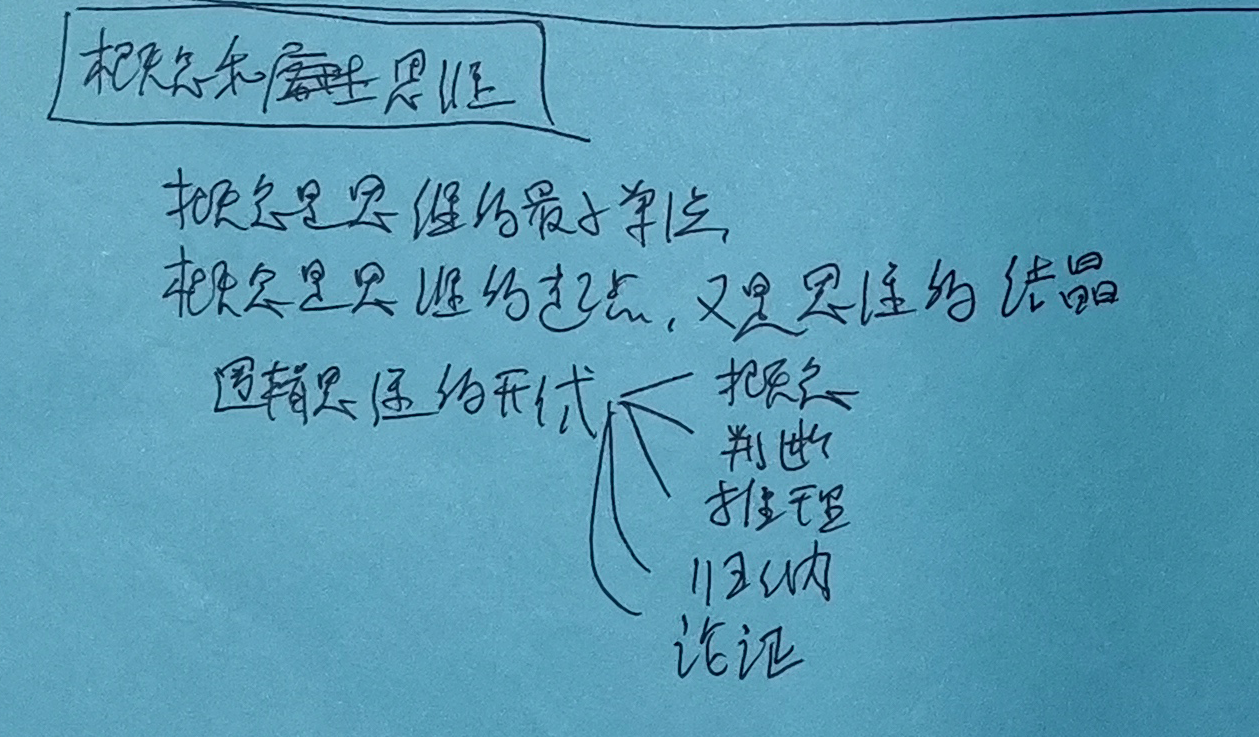 概念和思维
概念是思维的最小单位,
概念是思维的起点,又是思维的结晶
逻辑思维的形式
概念
判断
推理
归纳
论证